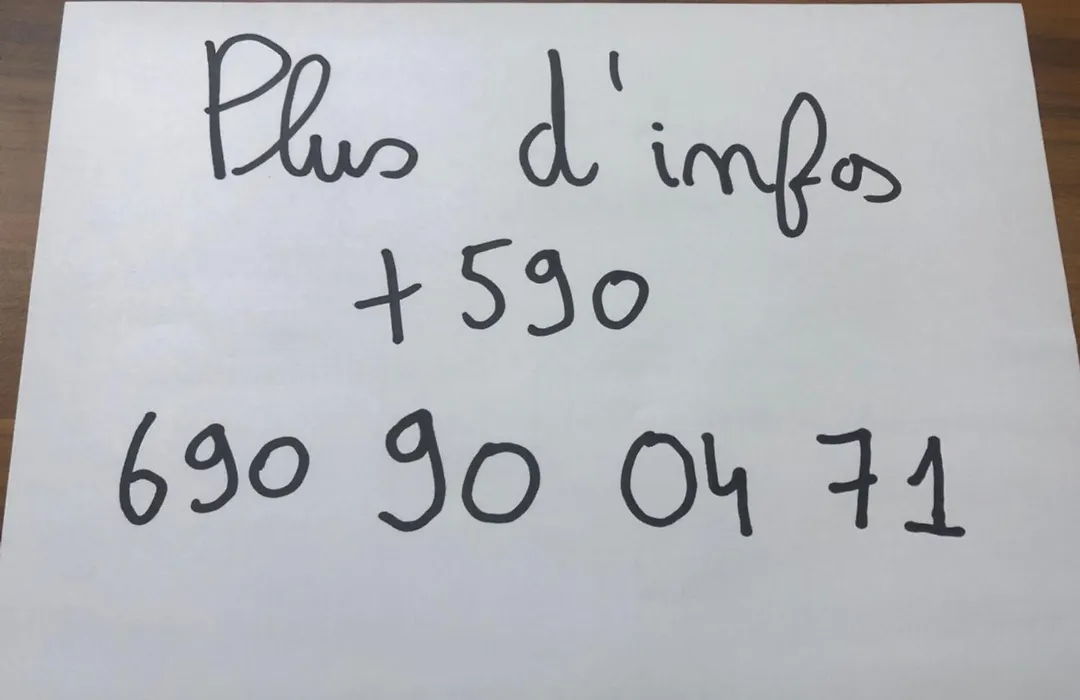 Plus d'infos
+590
690 90 04 71